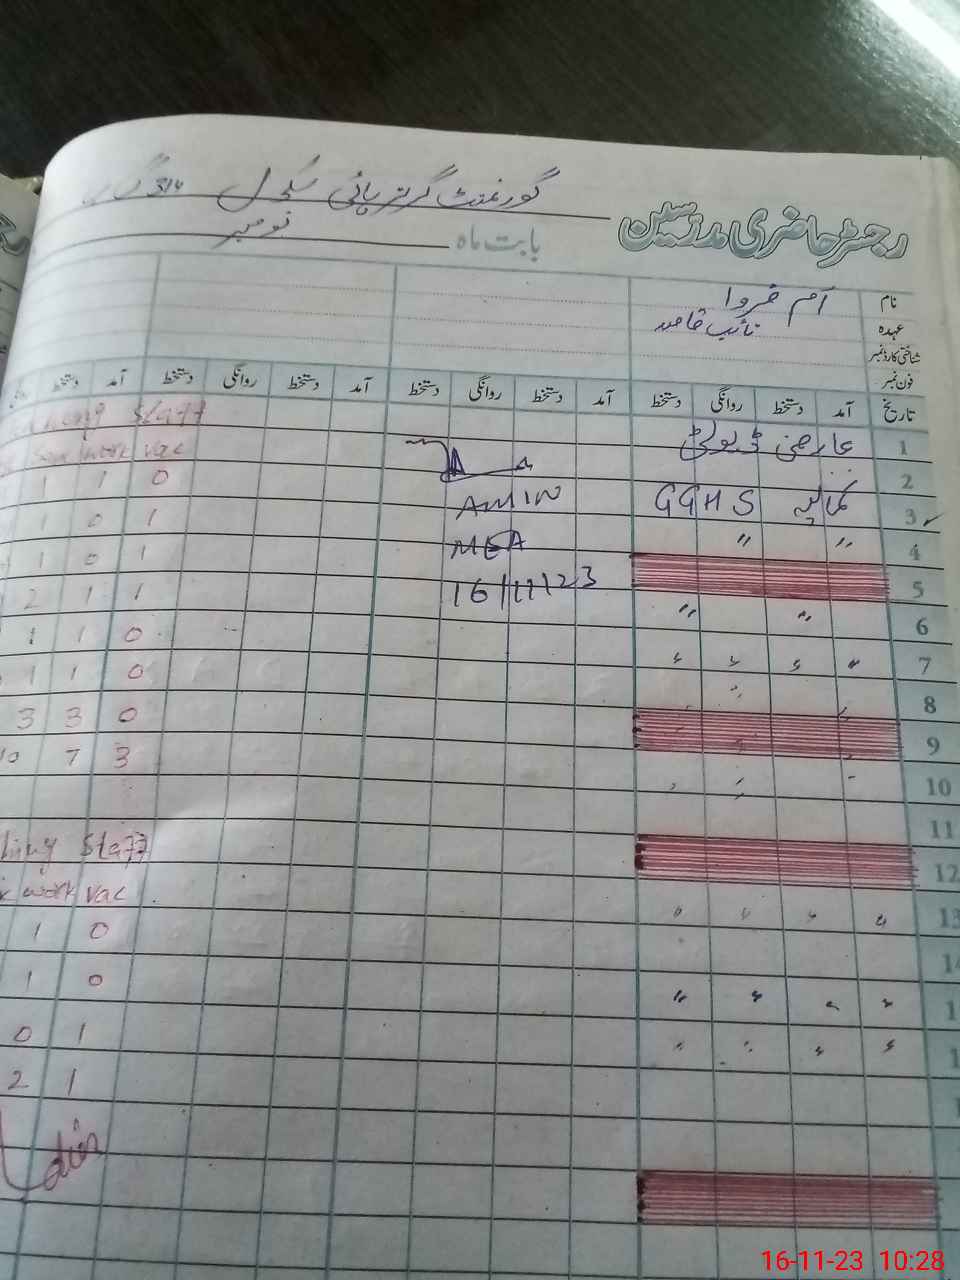 گورنمنٹ گرلز ہائی سکول 316 گ ب
رجسٹر حاضری مدرسین
بابت ماہ نومبر
نام ام فروا
عہدہ نائب قاصد
شناختی کارڈ نمبر
فون نمبر
تاریخ آمد دستخط روانگی دستخط آمد دستخط روانگی دستخط آمد دستخط روانگی دستخط آمد دستخط
Staff
1 عارضی ڈیوٹی
work vac
2
1 1 0
3 GGHS کمالیہ
AMIN
1 0 1
4 〃 〃
MEA
1 0 1
5
16/11/23
2 1 1
6 〃 〃
1 1 0
7 〃 〃 〃 〃
1 1 0
8
3 3 0
9
10 7 3
10
11
Staff
12
work vac
13 〃 〃 〃 〃
1 0
14
1 0
〃 〃 〃 〃
0 1
〃 〃 〃 〃
2 1
16-11-23 10:28